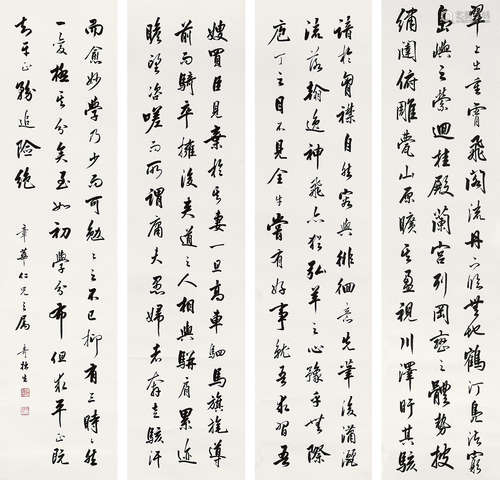 翠上出重霄飛閣流丹下臨無地鶴汀鳧渚窮
島嶼之縈迴桂殿蘭宮列岡巒之體勢披
綉闥俯雕甍山原曠其盈視川澤盱其駭
譜於胷襟自然容與徘徊意先筆後瀟灑
流落翰逸神飛亦猶弘羊之心豫乎無際
庖丁之目不見全牛嘗有好事就吾求習吾
嫂買臣見棄於其妻一旦高車駟馬旗旄導
前而騎卒擁後夾道之人相與駢肩累迹
瞻望咨嗟而所謂庸夫愚婦者奔走駭汗
而愈妙學乃少而可勉勉之不已抑有三時時然
一變極其分矣至如初學分布但求平正既
知平正務追險絕
章華仁兄之屬